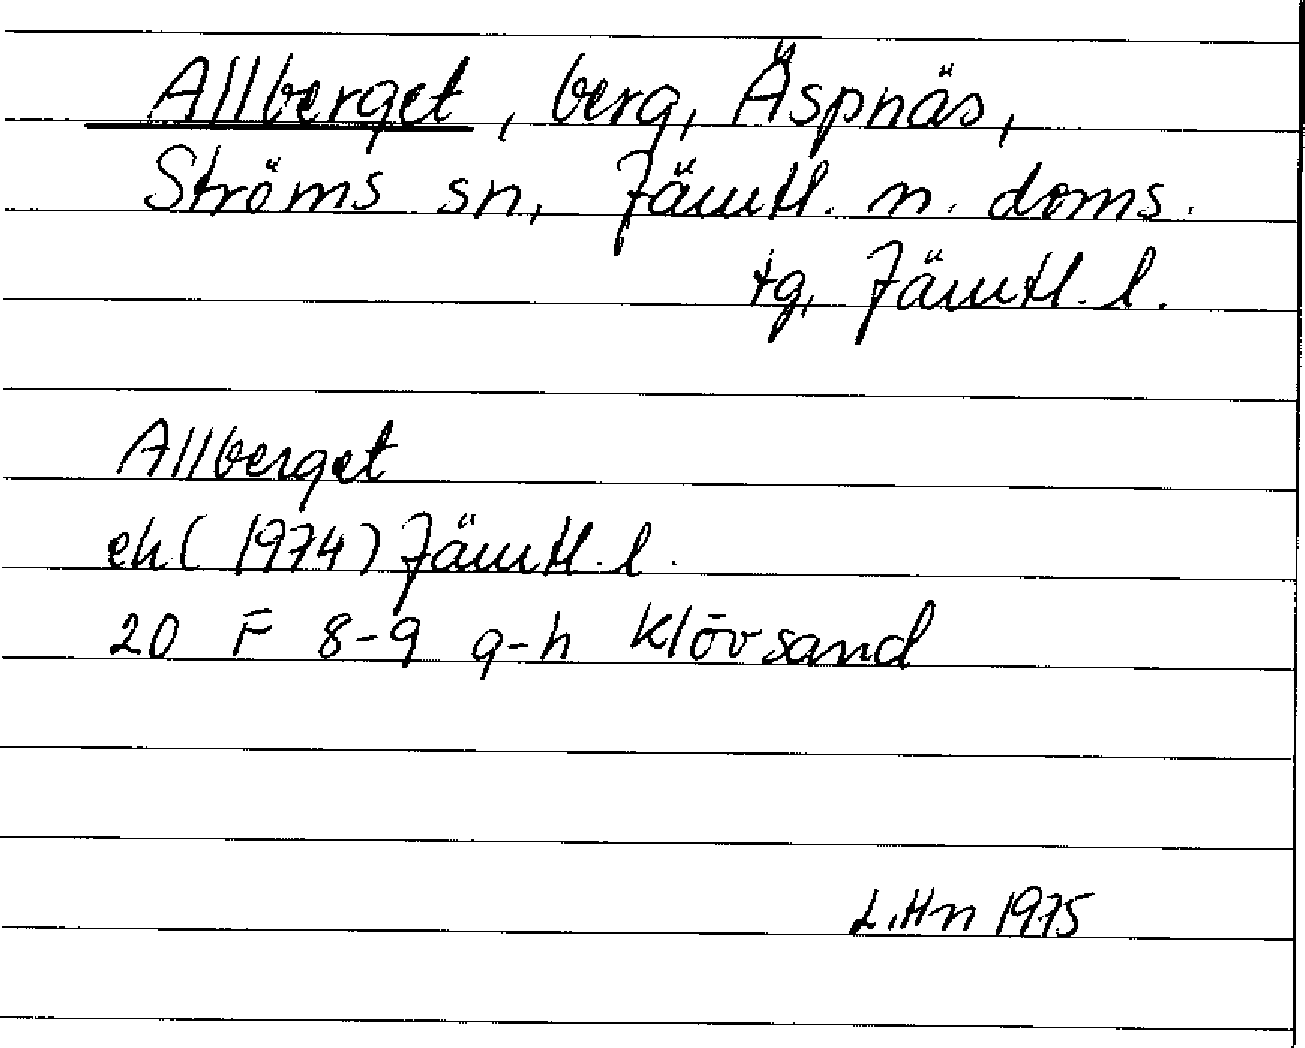 Allberget, berg, Äspnäs,
Ströms sn, Jämtl. n. doms.
tg, Jämtl. l.
Allberget
ek (1974) Jämtl. l.
20 F 8-9 g-h Klövsand
L.Hn 1975